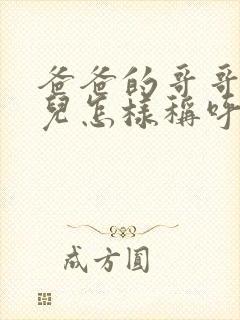 爸爸的哥哥
兒怎樣稱呼
成方圓